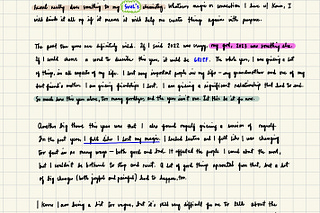 really does something to my soul's chemistry. Whatever magic or connection I have of Him, I
will drink it all up if it means it will help me create things again with purpose.
The past two years are definitely wild. If I said 2022 was crazy, my god, 2023 was something else.
If I could choose a word to describe this year, it would be GRIEF. The whole year, I was giving a lot
of things, in all aspects of my life. I lost very important people in my life - my grandmother and one of my
best friend's mother. I am grieving friendships I lost. I am grieving a significant relationship that had to end.
So much loss this year alone, too many goodbyes, and the year isn't over yet this be it for me.
Another big theme this year was that I also found myself grieving a version of myself.
In the past years, I felt like I lost a lot of magic. I lacked and I felt like I was changing
too fast in so many ways - both good and bad. It affected the people I cared about the most,
but I couldn't be bothered to stop and reset. A lot of good things sprouted from that, but a lot
of big changes (both joyful and painful) had to happen, too.
I know I am being a bit too vague, but it's still very difficult for me to talk about the